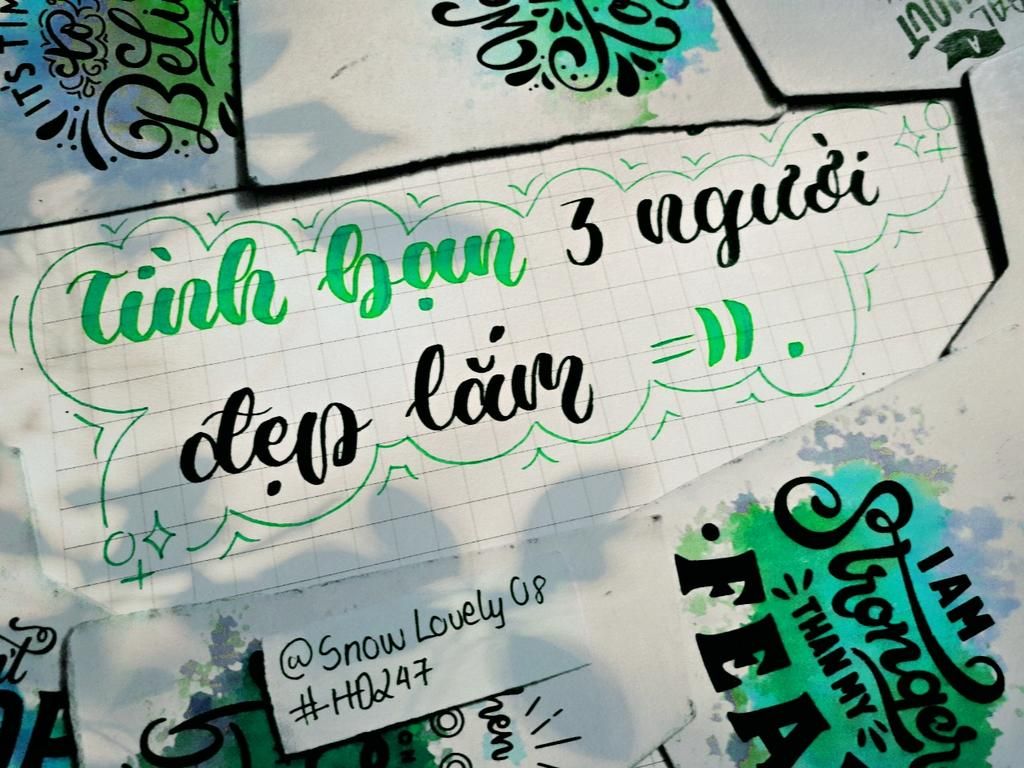 IT'S TIM
to
Beli
A
Tình bạn 3 người
đẹp lắm =)) .
@Snow Lovely 08
#HD247
I AM
Stronger
THAN MY
FEA
hen
ON